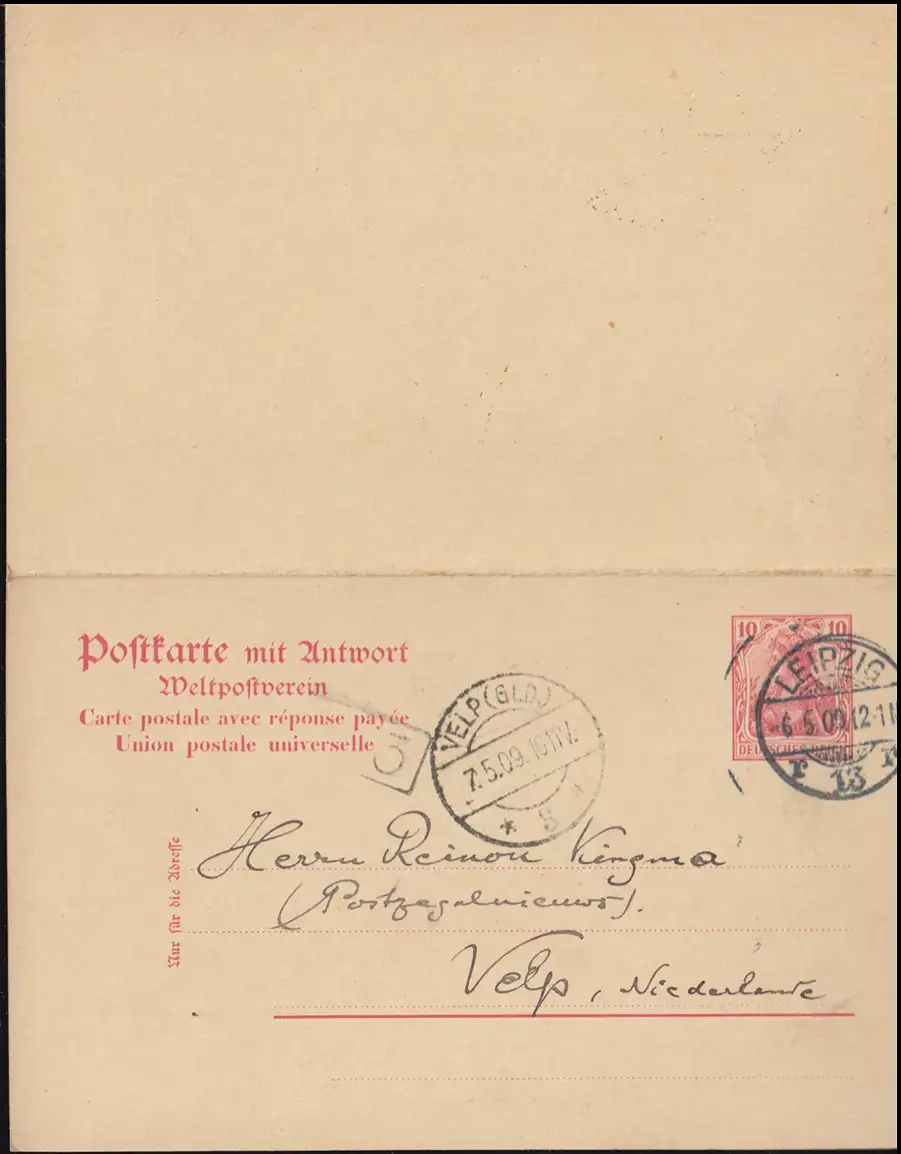 Postkarte mit Antwort
Weltpostverein
Carte postale avec réponse payée
Union postale universelle
10 10
DEUTSCHES REICH
LEIPZIG
6.5.09.12-1
13
VELP (GLD.)
7.5.09.10-11V.
5
Nur für die Adresse
Herrn Reinou Kingma
(Postzegelnieuws).
Velp, Niederlande